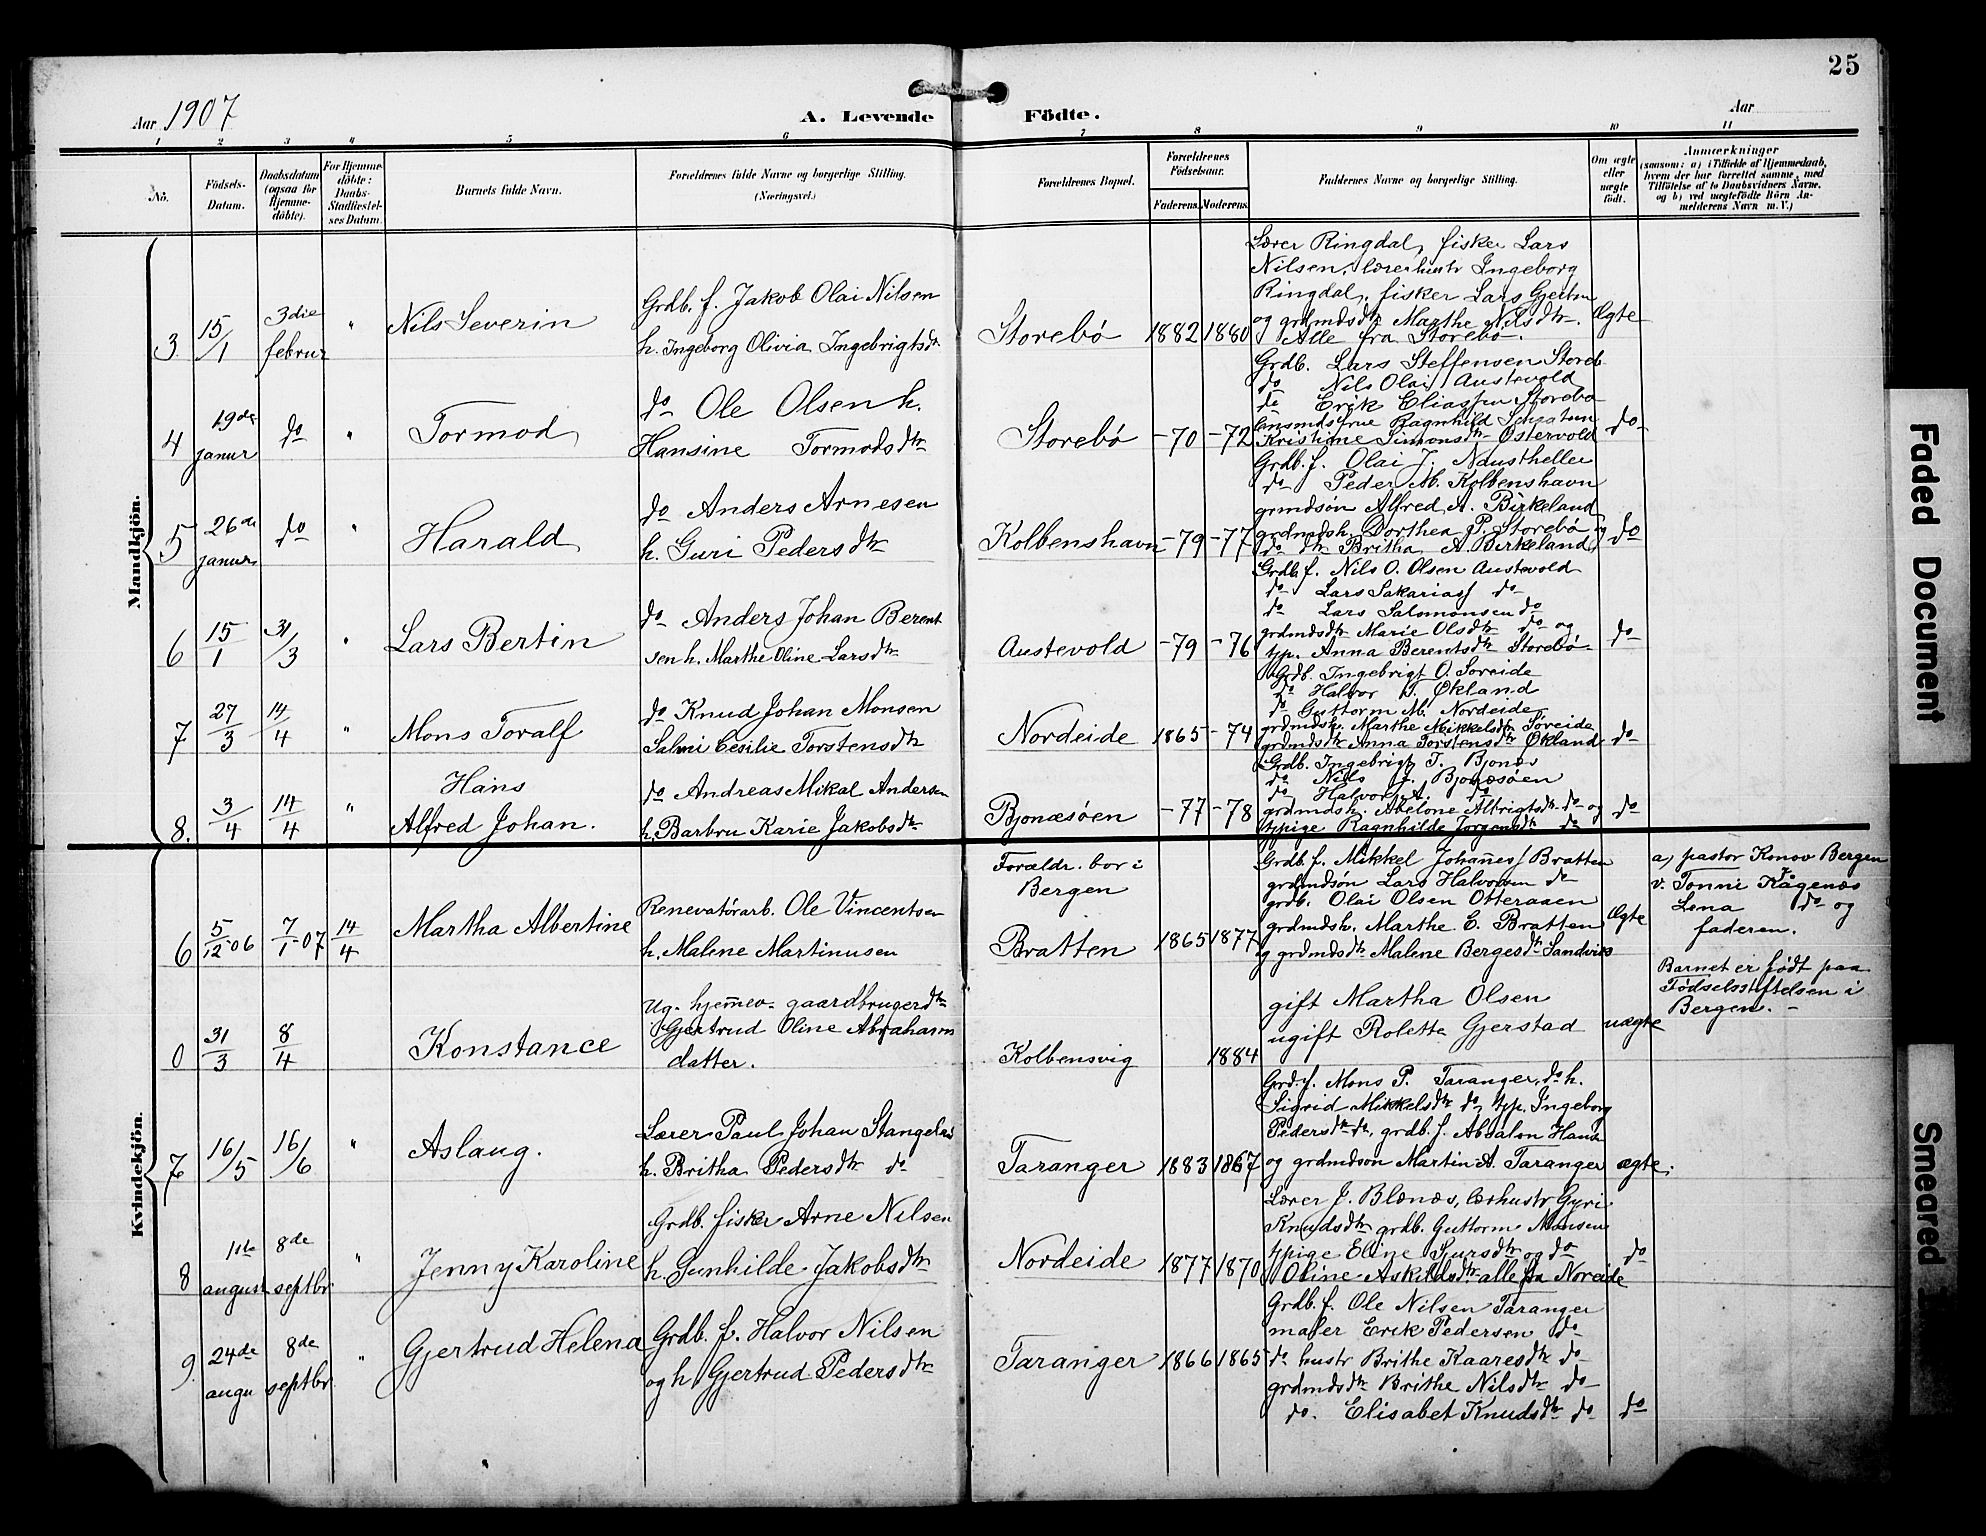 25
Aar 1907
A. Levende Födte.
Aar
1 2 3 4 5 6 7 8 9 10 11
No.
Födsels-
Datum.
Daabsdatum
(ogsaa for
Hjemme-
döbte).
For Hjemme-
döbte:
Daabs-
Stadfæstel-
ses Datum.
Barnets fulde Navn.
Forældrenes fulde Navne og borgerlige Stilling.
(Næringsvei.)
Forældrenes Bopæl.
Forældrenes
Födselsaar.
Faderens. Moderens.
Faddernes Navne og borgerlige Stilling.
Om ægte
eller
uægte
födt.
Anmærkninger
(saasom: a) i Tilfælde af Hjemmedaab,
hvem der har forrettet samme, med
Tilföielse af to Daabsvidners Navne,
og b) ved uægtefödte Börn An-
melderens Navn m. V.)
Mandkjön.
3 15/1 3die februr " Nils Severin
Grdb. f. Jakob Olai Nilsen
h. Ingeborg Olivia Ingebrigtsdtr
Storebø 1882 1880
Lærer Ringdal, fisker Lars
Nilsen, lærerhustr Ingeborg
Ringdal, fisker Lars
og grdmdsdtr Marthe Nilsdtr.
Alle fra Storebø.
Ægte
4 19de janur do " Tormod
do Ole Olsen h.
Hansine Tormodsdtr
Storebø -70 -72
Grdb. Lars Steffensen Storeb
do Nils Olai Austevold
do Erik Eliassen Storebø
Ragnhild
Kristine Simonsdtr Østervold
do
5 26de janur do " Harald
do Anders Arnesen
h. Guri Pedersdtr
Kolbenshavn -79 -77
Grdb. f. Olai J. Naustheller
do Peder M. Kolbenshavn
grmdsön Alfred A. Birkeland
grdmdsh. Dorthea P. Storebø og
do dtr Britha A. Birkeland
do
6 15/1 31/3 " Lars Bertin
do Anders Johan Berent
sen h. Marthe Oline Larsdtr
Austevold -79 -76
Grdb f. Nils O. Olsen Austevold
do Lars Sakarias do
do Lars Salomonsen do
grdmdsdtr Marie Olsdtr do og
typ. Anna Berentsdtr Storebø
do
7 27/3 14/4 " Mons Toralf
do Knud Johan Monsen
Salmi Cesilie Torstensdtr
Nordeide 1865 -74
Grdb. Ingebrigt O. Søreide
do Halvor Økland
do Guttorm M. Nordeide
grdmdsh. Marthe Mikkelsdtr Søreide
grdmdsdtr Anna Torstensdtr Økland
do
8. 3/4 14/4 " Hans
Alfred Johan.
do Andreas Mikal Andersen
h. Barbru Karie Jakobsdtr
Bjonæsøen -77 -78
Grdb. Ingebrigt T. Bjonæs
do Nils J. Bjonæsøen
do Halvor A. do
grdmdsh. Abelone Albrigtsdtr do og
typige Ragnhilde Jørgensdtr do
do
Kvindekjön.
6 5/12-06 7/1-07 14/4 Martha Albertine
Renevatørarb. Ole Vincentsen
h. Malene Martinusen
Forældr. bor i
Bergen
Bratten 1865 1877
Grdb. f. Mikkel Johannes Bratten
grdmdsön Lars Halvorsen do
grdb. Olai Olsen Otteraaen
grdmdsh. Marthe E. Bratten
og grdmdsdtr Malene Bergesdtr Sandvik
Ægte
a, pastor Konow Bergen
v. Tonni Kågenæs
Lena do og
faderen.
0 31/3 8/4 Konstance
Ug. hjemmev. gaardbrugerdtr
Gjertrud Oline Abraham
datter.
Kolbensvig 1884
gift Martha Olsen
ugift Rolette Gjerstad
uægte
Barnet er født paa
Fødselsstiftelsen i
Bergen. -
7 16/5 16/6 " Aslaug.
Lærer Paul Johan Stangeland
h. Britha Pedersdtr do
Taranger 1883 1867
Grd. f. Mons P. Taranger, do h.
Sigrid Mikkelsdtr do, typ. Ingeborg
Pedersdtr do, grdb. f. Absalon Hansen
og grdmdson Martin A. Taranger
ægte.
8 1ste august 8de septbr " Jenny Karoline
Grdb. fisker Arne Nilsen
h. Gunhilde Jakobsdtr
Nordeide 1877 1870
Lærer J. Blænæs, lærhustr Gyri
Knudsdtr grdb. Guttorm Monsen
typige Eline Sjursdtr og do
Oline Askildsdtr alle fra Noreide
do
9. 24de augu 8de septbr " Gjertrud Helena
Grdb. f. Halvor Nilsen
og h Gjertrud Pedersdtr
Taranger 1866 1865
Grdb. f. Ole Nilsen Taranger
maler Erik Pedersen do
do hustr Brithe Kaaresdtr do
grdmdsdtr Brithe Nilsdtr do
do. Elisabet Knudsdtr do
do
Faded Document
Smeared